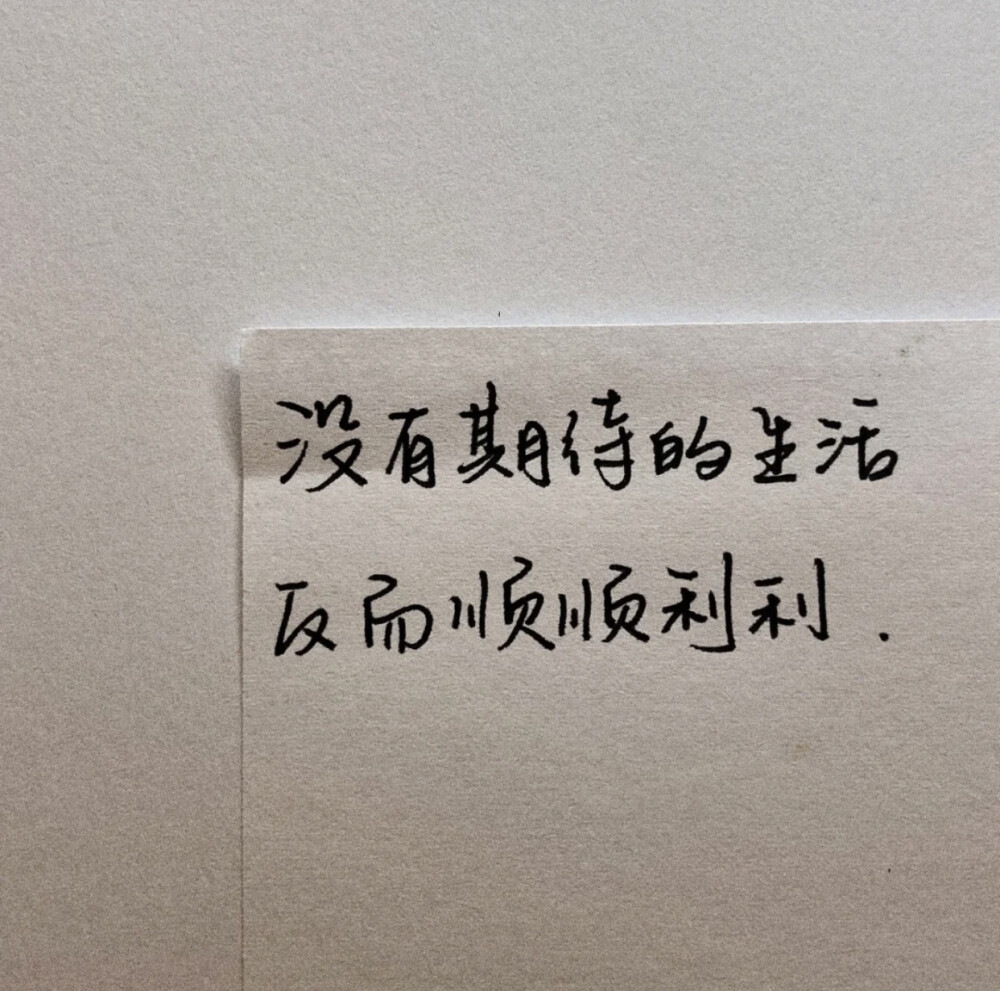 没有期待的生活
反而顺顺利利.